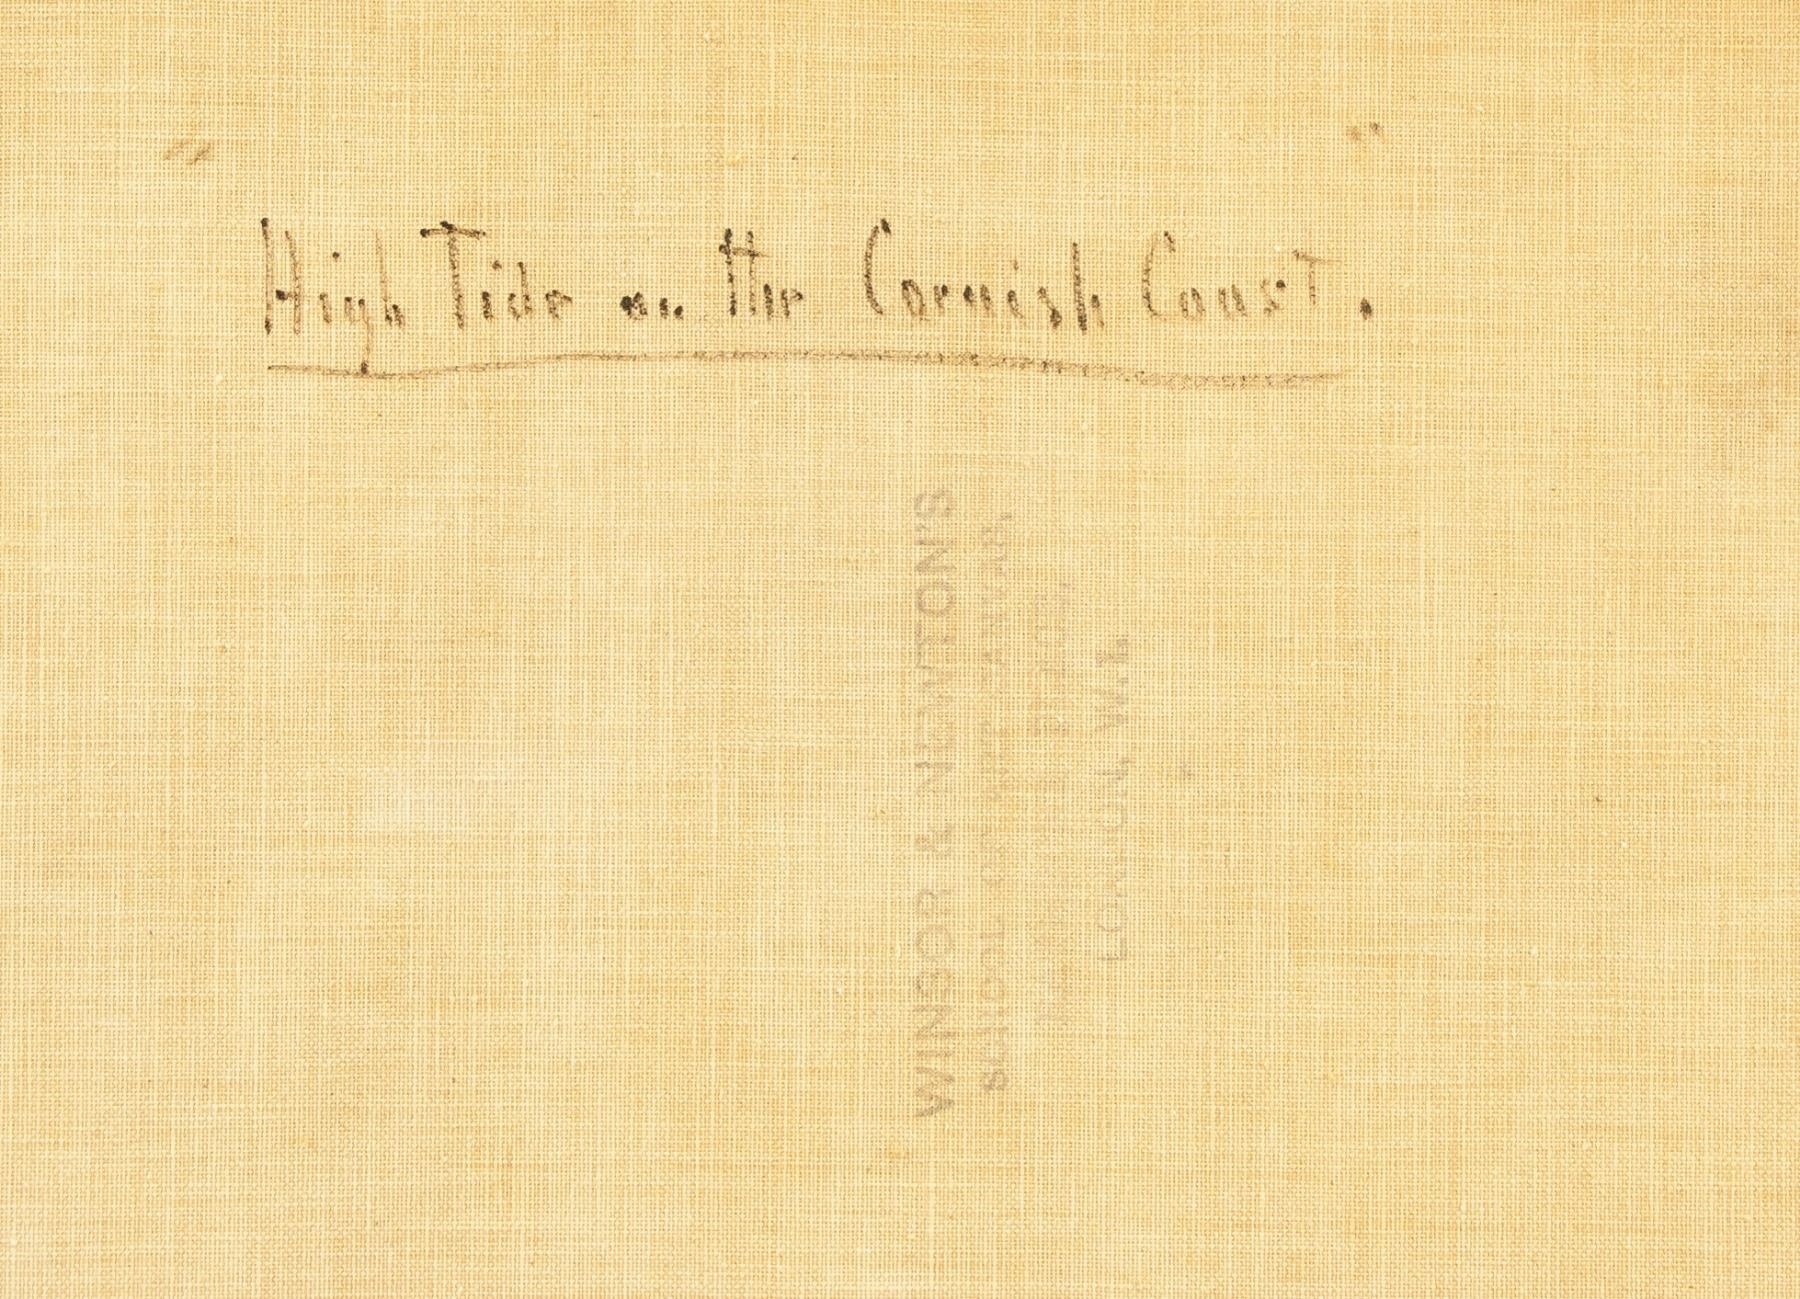 " "
High Tide on the Cornish Coast.
WINSOR & NEWTON'S
LONDON, W.1.